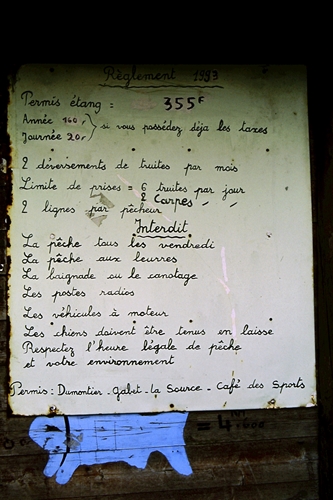 Règlement 1993
Permis étang = 355F
Année 160F
Journée 20F
si vous possédez déja les taxes
2 déversements de truites par mois
Limite de prises = 6 truites par jour
2 Carpes " "
2 lignes par pêcheur
Interdit
La pêche tous les vendredi
La pêche aux leurres
La baignade ou le canotage
Les postes radios
Les véhicules à moteur
Les chiens doivent être tenus en laisse
Respectez l'heure légale de pêche
et votre environnement
Permis : Dumontier - Gabet - La Source - Café des Sports